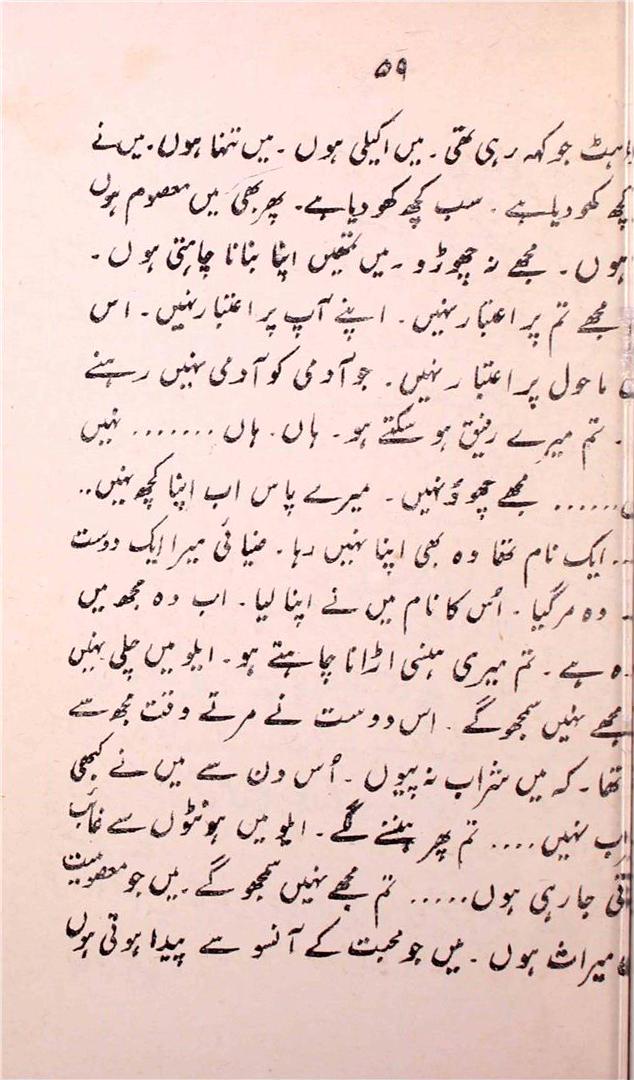 ۵۹
ہٹ جو کہہ رہی تھی۔ میں اکیلی ہوں۔ میں تنہا ہوں۔ میں نے
کچھ کھو دیا ہے۔ سب کچھ کھو دیا ہے۔ پھر بھی میں معصوم ہوں
ہوں۔ مجھے نہ چھوڑو۔ میں تمھیں اپنا بنانا چاہتی ہوں۔
مجھے تم پر اعتبار نہیں۔ اپنے آپ پر اعتبار نہیں۔ اس
ماحول پر اعتبار نہیں۔ جو آدمی کو آدمی نہیں رہنے
۔ تم میرے رفیق ہو سکتے ہو۔ ہاں۔ ہاں ....... نہیں
...... مجھے چھوؤ نہیں۔ میرے پاس اب اپنا کچھ نہیں..
.. ایک نام تھا وہ بھی اپنا نہیں رہا۔ ضیائی میرا ایک دوست
۔ وہ مر گیا۔ اُس کا نام میں نے اپنا لیا۔ اب وہ مجھ میں
ہے۔ تم میری ہنسی اڑانا چاہتے ہو۔ ایلو میں چلی نہیں
مجھے نہیں سمجھو گے۔ اس دوست نے مرتے وقت مجھ سے
تھا۔ کہ میں شراب نہ پیوں۔ اُس دن سے میں نے کبھی
نہیں.... تم پھر ہنسنے لگے۔ ایلو میں ہونٹوں سے غائب
جا رہی ہوں..... تم مجھے نہیں سمجھو گے۔ میں جو معصومیت
میراث ہوں۔ میں جو محبت کے آنسو سے پیدا ہوتی ہوں